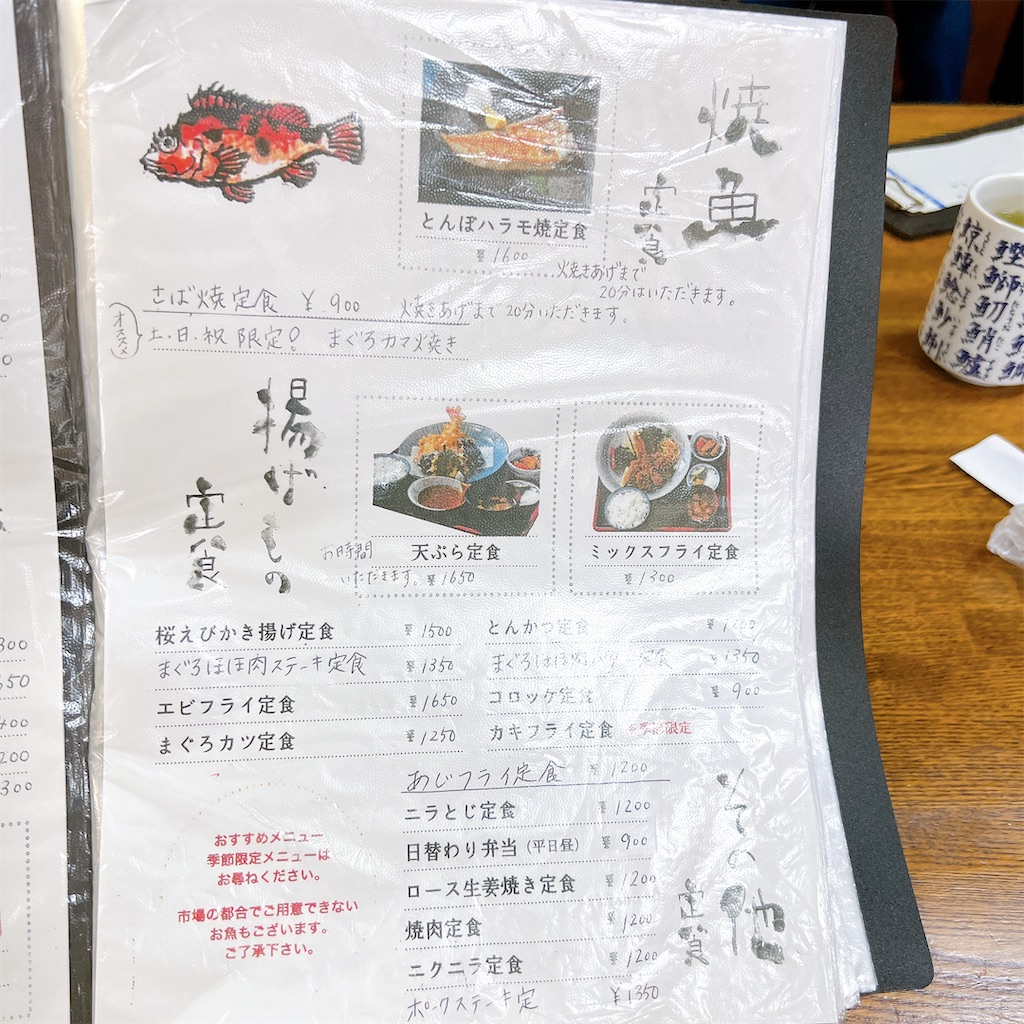 焼魚
定食
とんぼハラモ焼定食
1600
火焼きあげまで
20分はいただきます。
さば焼定食 ¥900 焼きあげまで20分いただきます。
オススメ
土・日・祝 限定! まぐろカマ焼き
揚げもの
定食
天ぷら定食
お時間
いただきます。
1650
ミックスフライ定食
1300
桜えびかき揚げ定食 1500
まぐろほほ肉ステーキ定食 1350
エビフライ定食 1650
まぐろカツ定食 1250
とんかつ定食
まぐろほほ肉 定食 1350
コロッケ定食 900
カキフライ定食 季節限定
その他
定食
あじフライ定食 1200
ニラとじ定食 1200
日替わり弁当(平日昼) 900
ロース生姜焼き定食 1200
焼肉定食 1200
ニクニラ定食 1200
ポークステーキ定 ¥1350
おすすめメニュー
季節限定メニューは
お尋ねください。
市場の都合でご用意できない
お魚もございます。
ご了承下さい。